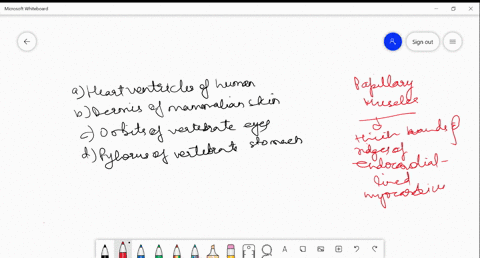 Microsoft Whiteboard
Sign out
a) Heart ventricles of human
b) Dermis of mammalian skin
c) Orbits of vertebrate eyes
d) Pylorus of vertebrate stomach
Papillary
Muscles
bands
ridges of
endocardial-
lined